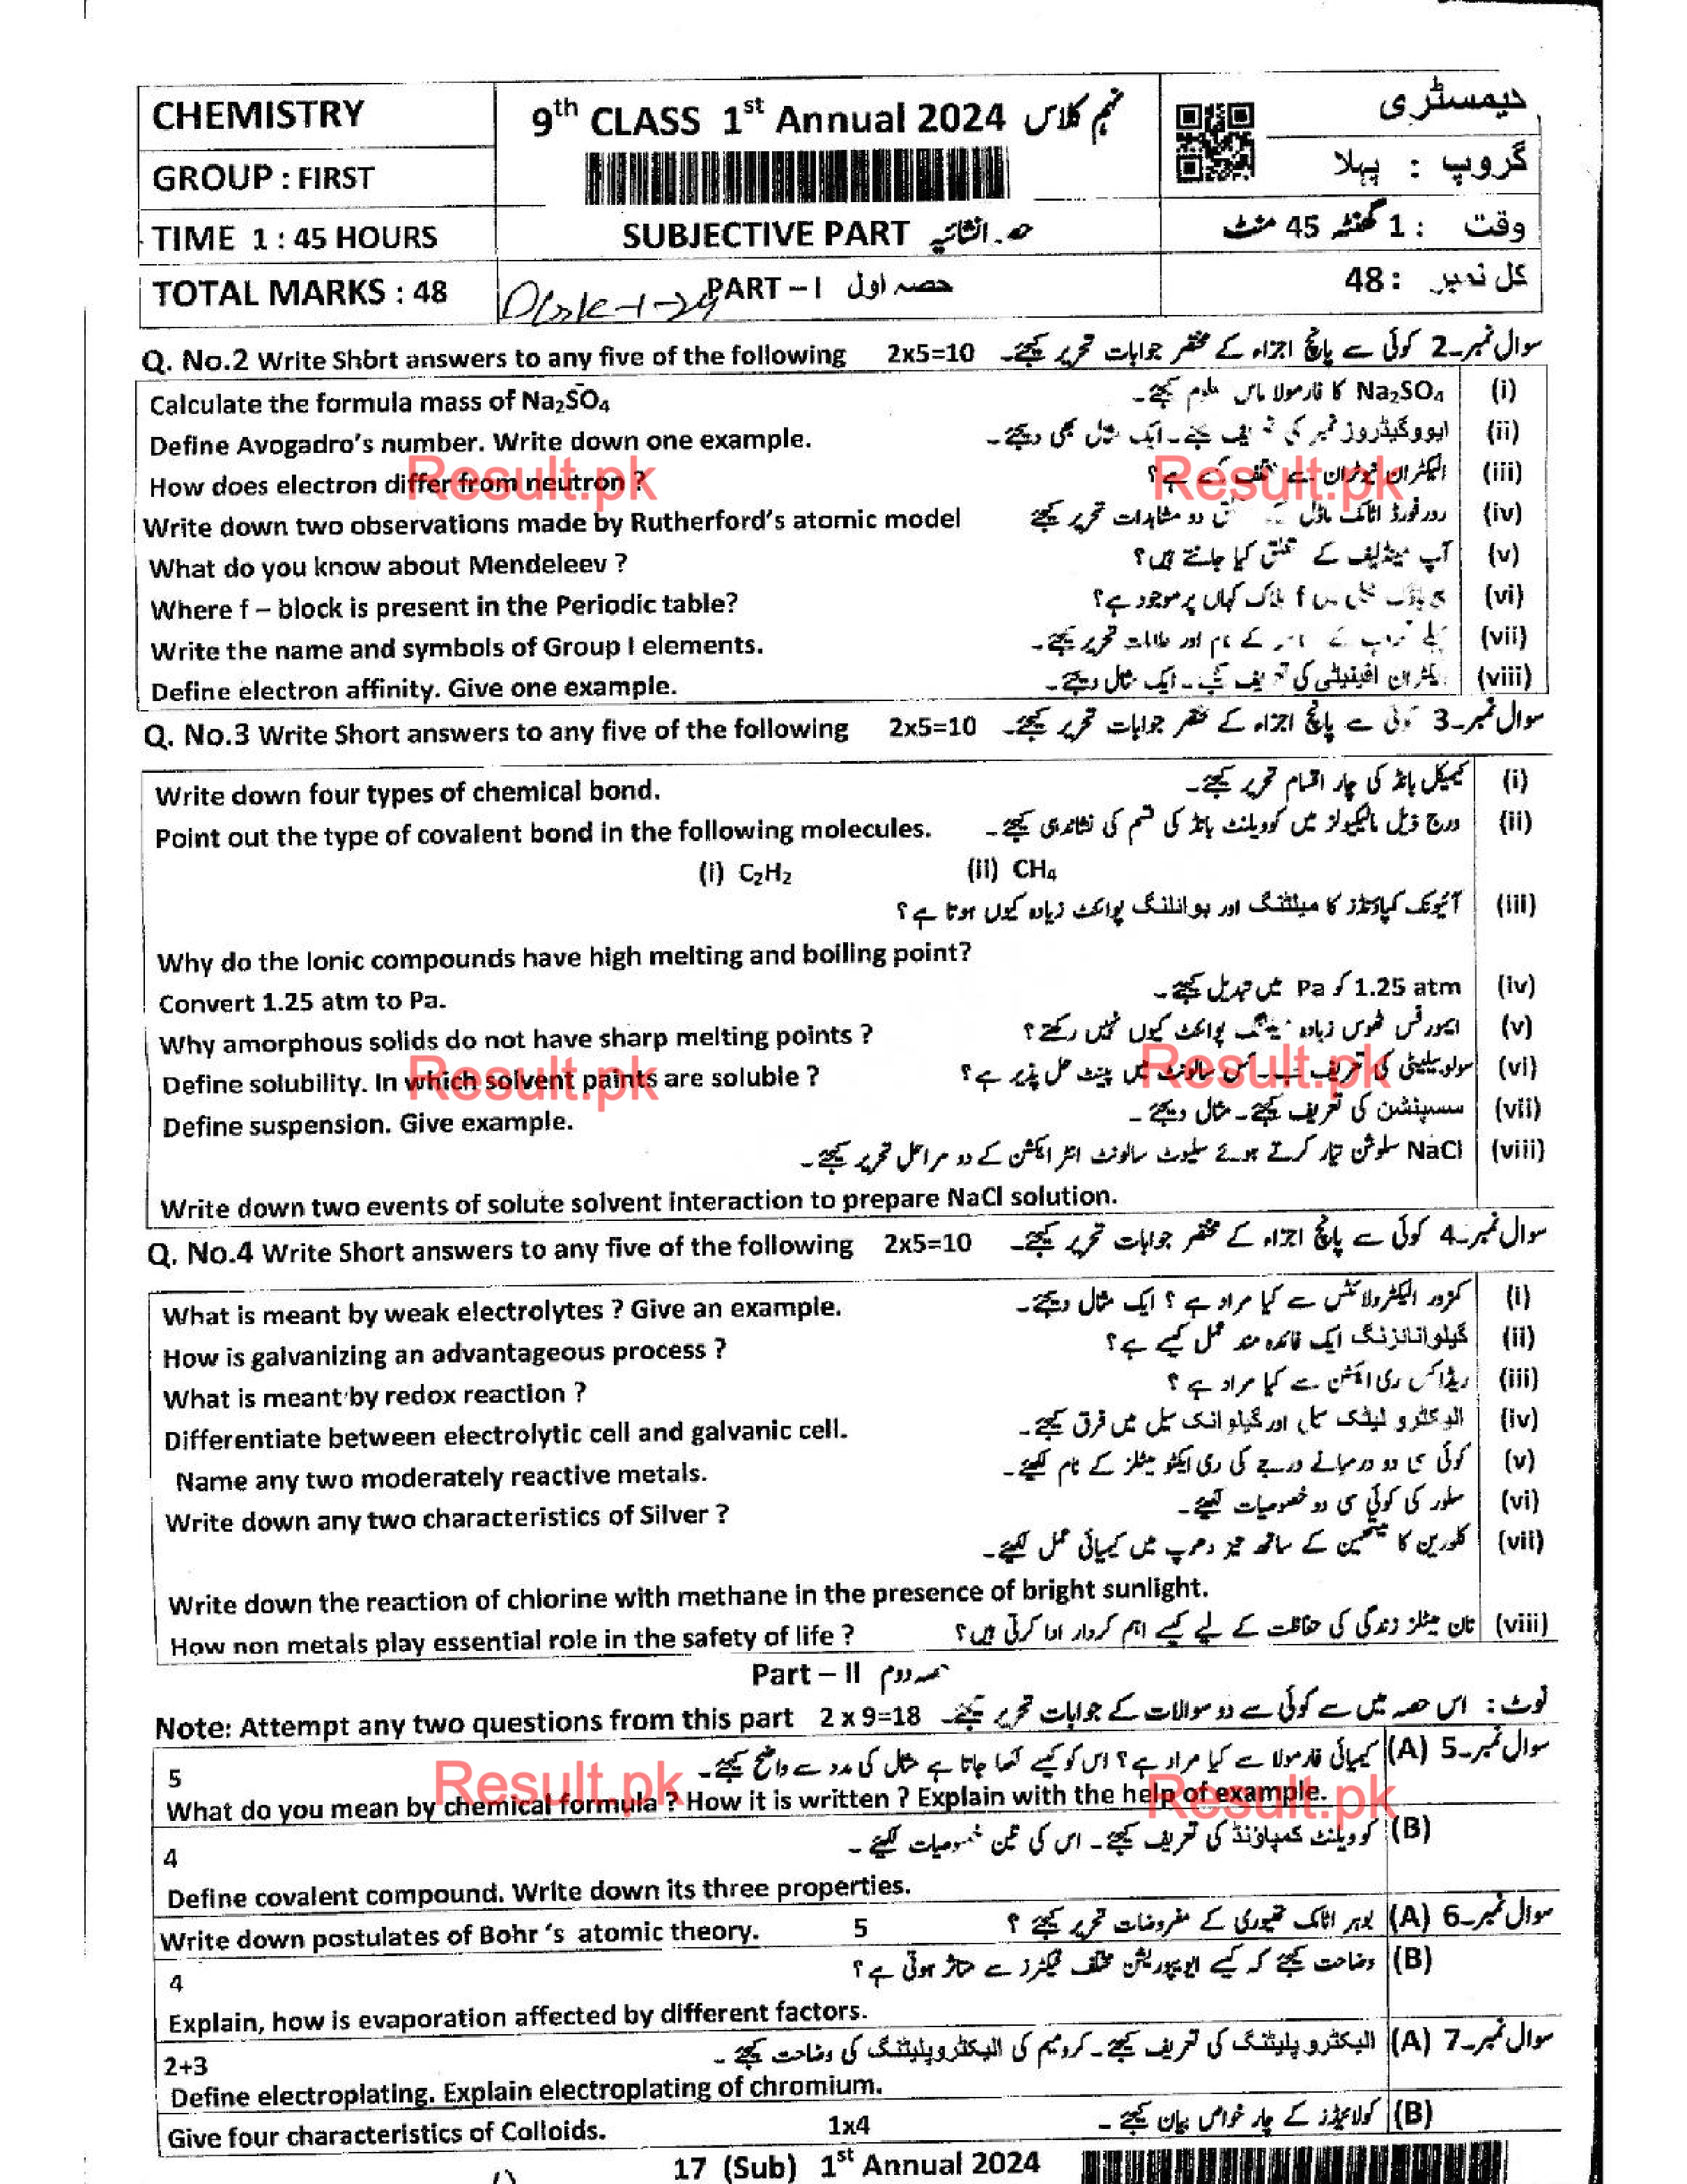 CHEMISTRY
9th CLASS 1st Annual 2024 نہم کلاس
کیمسٹری
GROUP : FIRST
گروپ : پہلا
TIME 1 : 45 HOURS
SUBJECTIVE PART حصہ انشائیہ
وقت : 1 گھنٹہ 45 منٹ
TOTAL MARKS : 48
PART – I حصہ اول
کل نمبر : 48
Q. No.2 Write Short answers to any five of the following 2x5=10 سوال نمبر 2۔ کوئی سے پانچ اجزاء کے مختصر جوابات تحریر کیجئے۔
Calculate the formula mass of Na₂SO₄ Na₂SO₄ کا فارمولا ماس معلوم کیجئے۔ (i)
Define Avogadro's number. Write down one example. ایووگیڈروز نمبر کی تعریف کیجئے۔ ایک مثال بھی دیجئے۔ (ii)
How does electron differ from neutron ? الیکٹران نیوٹران سے مختلف کیسے ہے؟ (iii)
Write down two observations made by Rutherford's atomic model ردرفورڈ اٹامک ماڈل کے متعلق دو مشاہدات تحریر کیجئے (iv)
What do you know about Mendeleev ? آپ مینڈلیف کے متعلق کیا جانتے ہیں؟ (v)
Where f – block is present in the Periodic table? پیریاڈک ٹیبل میں f بلاک کہاں پر موجود ہے؟ (vi)
Write the name and symbols of Group I elements. پہلے گروپ کے کے نام اور علامات تحریر کیجئے۔ (vii)
Define electron affinity. Give one example. الیکٹران افینیٹی کی تعریف کیجئے۔ ایک مثال دیجئے۔ (viii)
Q. No.3 Write Short answers to any five of the following 2x5=10 سوال نمبر 3۔ کوئی سے پانچ اجزاء کے مختصر جوابات تحریر کیجئے۔
Write down four types of chemical bond. کیمیکل بانڈ کی چار اقسام تحریر کیجئے۔ (i)
Point out the type of covalent bond in the following molecules. درج ذیل مالیکیولز میں کوویلنٹ بانڈ کی قسم کی نشاندہی کیجئے۔ (ii)
(i) C₂H₂ (ii) CH₄
آئیونک کمپاؤنڈز کا میلٹنگ اور بوائلنگ پوائنٹ زیادہ کیوں ہوتا ہے؟ (iii)
Why do the Ionic compounds have high melting and boiling point?
Convert 1.25 atm to Pa. 1.25 atm کو Pa میں تبدیل کیجئے۔ (iv)
Why amorphous solids do not have sharp melting points ? ایمورفس ٹھوس زیادہ میلٹنگ پوائنٹ کیوں نہیں رکھتے؟ (v)
Define solubility. In which solvent paints are soluble ? سولوبیلیٹی کی تعریف کیجئے۔ کس سالونٹ میں پینٹ حل پذیر ہے؟ (vi)
Define suspension. Give example. سسپنشن کی تعریف کیجئے۔ مثال دیجئے۔ (vii)
NaCl سلوشن تیار کرتے ہوئے سلیوٹ سالونٹ انٹر ایکشن کے دو مراحل تحریر کیجئے۔ (viii)
Write down two events of solute solvent interaction to prepare NaCl solution.
Q. No.4 Write Short answers to any five of the following 2x5=10 سوال نمبر 4۔ کوئی سے پانچ اجزاء کے مختصر جوابات تحریر کیجئے۔
What is meant by weak electrolytes ? Give an example. کمزور الیکٹرولائٹس سے کیا مراد ہے؟ ایک مثال دیجئے۔ (i)
How is galvanizing an advantageous process ? گیلوانائزنگ ایک فائدہ مند عمل کیسے ہے؟ (ii)
What is meant by redox reaction ? ریڈاکس ری ایکشن سے کیا مراد ہے؟ (iii)
Differentiate between electrolytic cell and galvanic cell. الیکٹرو لیٹک سیل اور گیلوانک سیل میں فرق کیجئے۔ (iv)
Name any two moderately reactive metals. کوئی سی دو درمیانے درجے کی ری ایکٹو میٹلز کے نام لکھیے۔ (v)
Write down any two characteristics of Silver ? سلور کی کوئی سی دو خصوصیات لکھیے۔ (vi)
کلورین کا میتھین کے ساتھ تیز دھوپ میں کیمیائی عمل لکھیے۔ (vii)
Write down the reaction of chlorine with methane in the presence of bright sunlight.
How non metals play essential role in the safety of life ? نان میٹلز زندگی کی حفاظت کے لیے کیسے اہم کردار ادا کرتی ہیں؟ (viii)
Part – II حصہ دوم
Note: Attempt any two questions from this part 2 x 9=18 نوٹ : اس حصہ میں سے کوئی سے دو سوالات کے جوابات تحریر کیجئے۔
5 سوال نمبر 5۔ (A) کیمیائی فارمولا سے کیا مراد ہے؟ اس کو کیسے لکھا جاتا ہے مثال کی مدد سے واضح کیجئے۔
What do you mean by chemical formula ? How it is written ? Explain with the help of example.
4 (B) کوویلنٹ کمپاؤنڈ کی تعریف کیجئے۔ اس کی تین خصوصیات لکھیے۔
Define covalent compound. Write down its three properties.
Write down postulates of Bohr 's atomic theory. 5 سوال نمبر 6۔ (A) بوہر اٹامک تھیوری کے مفروضات تحریر کیجئے؟
4 (B) وضاحت کیجئے کہ کیسے ایوپوریشن مختلف فیکٹرز سے متاثر ہوتی ہے؟
Explain, how is evaporation affected by different factors.
2+3 سوال نمبر 7۔ (A) الیکٹرو پلیٹنگ کی تعریف کیجئے۔ کرومیم کی الیکٹروپلیٹنگ کی وضاحت کیجئے۔
Define electroplating. Explain electroplating of chromium.
Give four characteristics of Colloids. 1x4 (B) کولائیڈز کے چار خواص بیان کیجئے۔
17 (Sub) 1st Annual 2024
Result.pk
Result.pk
Result.pk
Result.pk
Result.pk
Result.pk